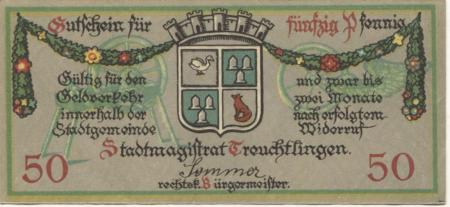 Gutschein für fünfzig Pfennig
Gültig für den
Geldverkehr
innerhalb der
Stadtgemeinde
und zwar bis
zwei Monate
nach erfolgtem
Widerruf
Stadtmagistrat Treuchtlingen.
50
Sommer
50
rechtsk. Bürgermeister.